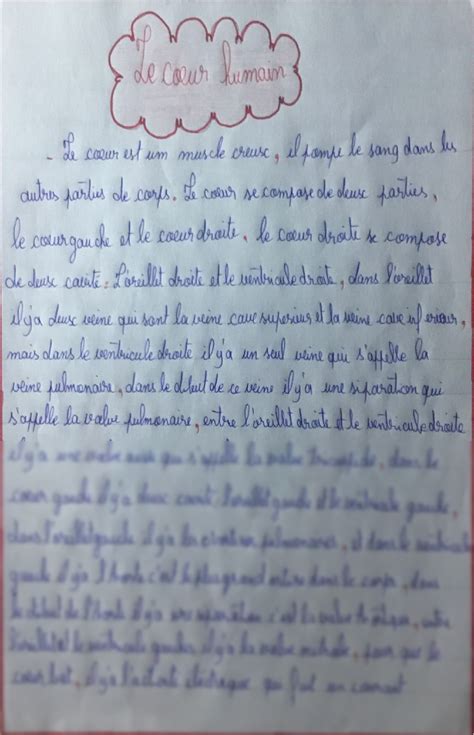 Le cœur humain
- Le cœur est um muscle creuse, il pompe le sang dans les
autres parties de corps. Le cœur se compose de deusc parties,
le cœur gauche et le cœur droite, le cœur droite se compose
de deusc cavité: L'oreillet droite et le ventricule droite, dans l'oreillet
il y'a deusc veine qui sont la veine cave superius et la veine cave inf erieur,
mais dans le ventricule droite il y'a un seul veine qui s'appelle la
veine pulmonaire, dans le début de ce veine il y'a une siparation qui
s'appelle la valve pulmonaire, entre l'oreillet droite et le ventricule droite
il y'a une valve aussi qui s'appelle la valve tricuspide, dans le
cœur gauche il y'a deusc cavit l'oreillet gauche et le ventricule gauche,
dans l'oreillet gauche il y'a les pulmonaires, et dans le ventricule
gauche il y'a l'Aorte c'est le plus grand artère dans le corps, dans
le début de l'Aorte il y'a une séparation c'est la valve entre
l'oreillet et le ventricule gauche il y'a la valve mitrale, pour que le
cœur bat, il y'a l'activité électrique qui fait un courant